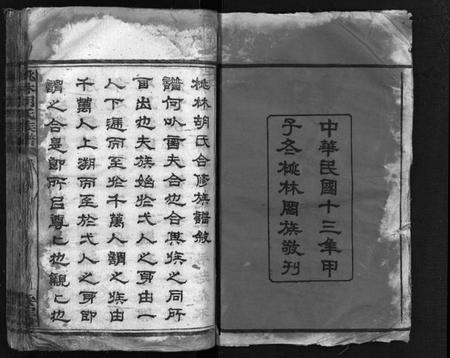 中華民國十三年甲
子冬桃林闔族敬刊
桃林胡氏合修族譜敘
譜何昉
夫合也合其族之同所
自出也夫族始於弌人之身由一
人下遞而至於千萬人謂之族由
千萬人上溯而至於弌人之身即
謂之合是即所㠯尊上也親上也